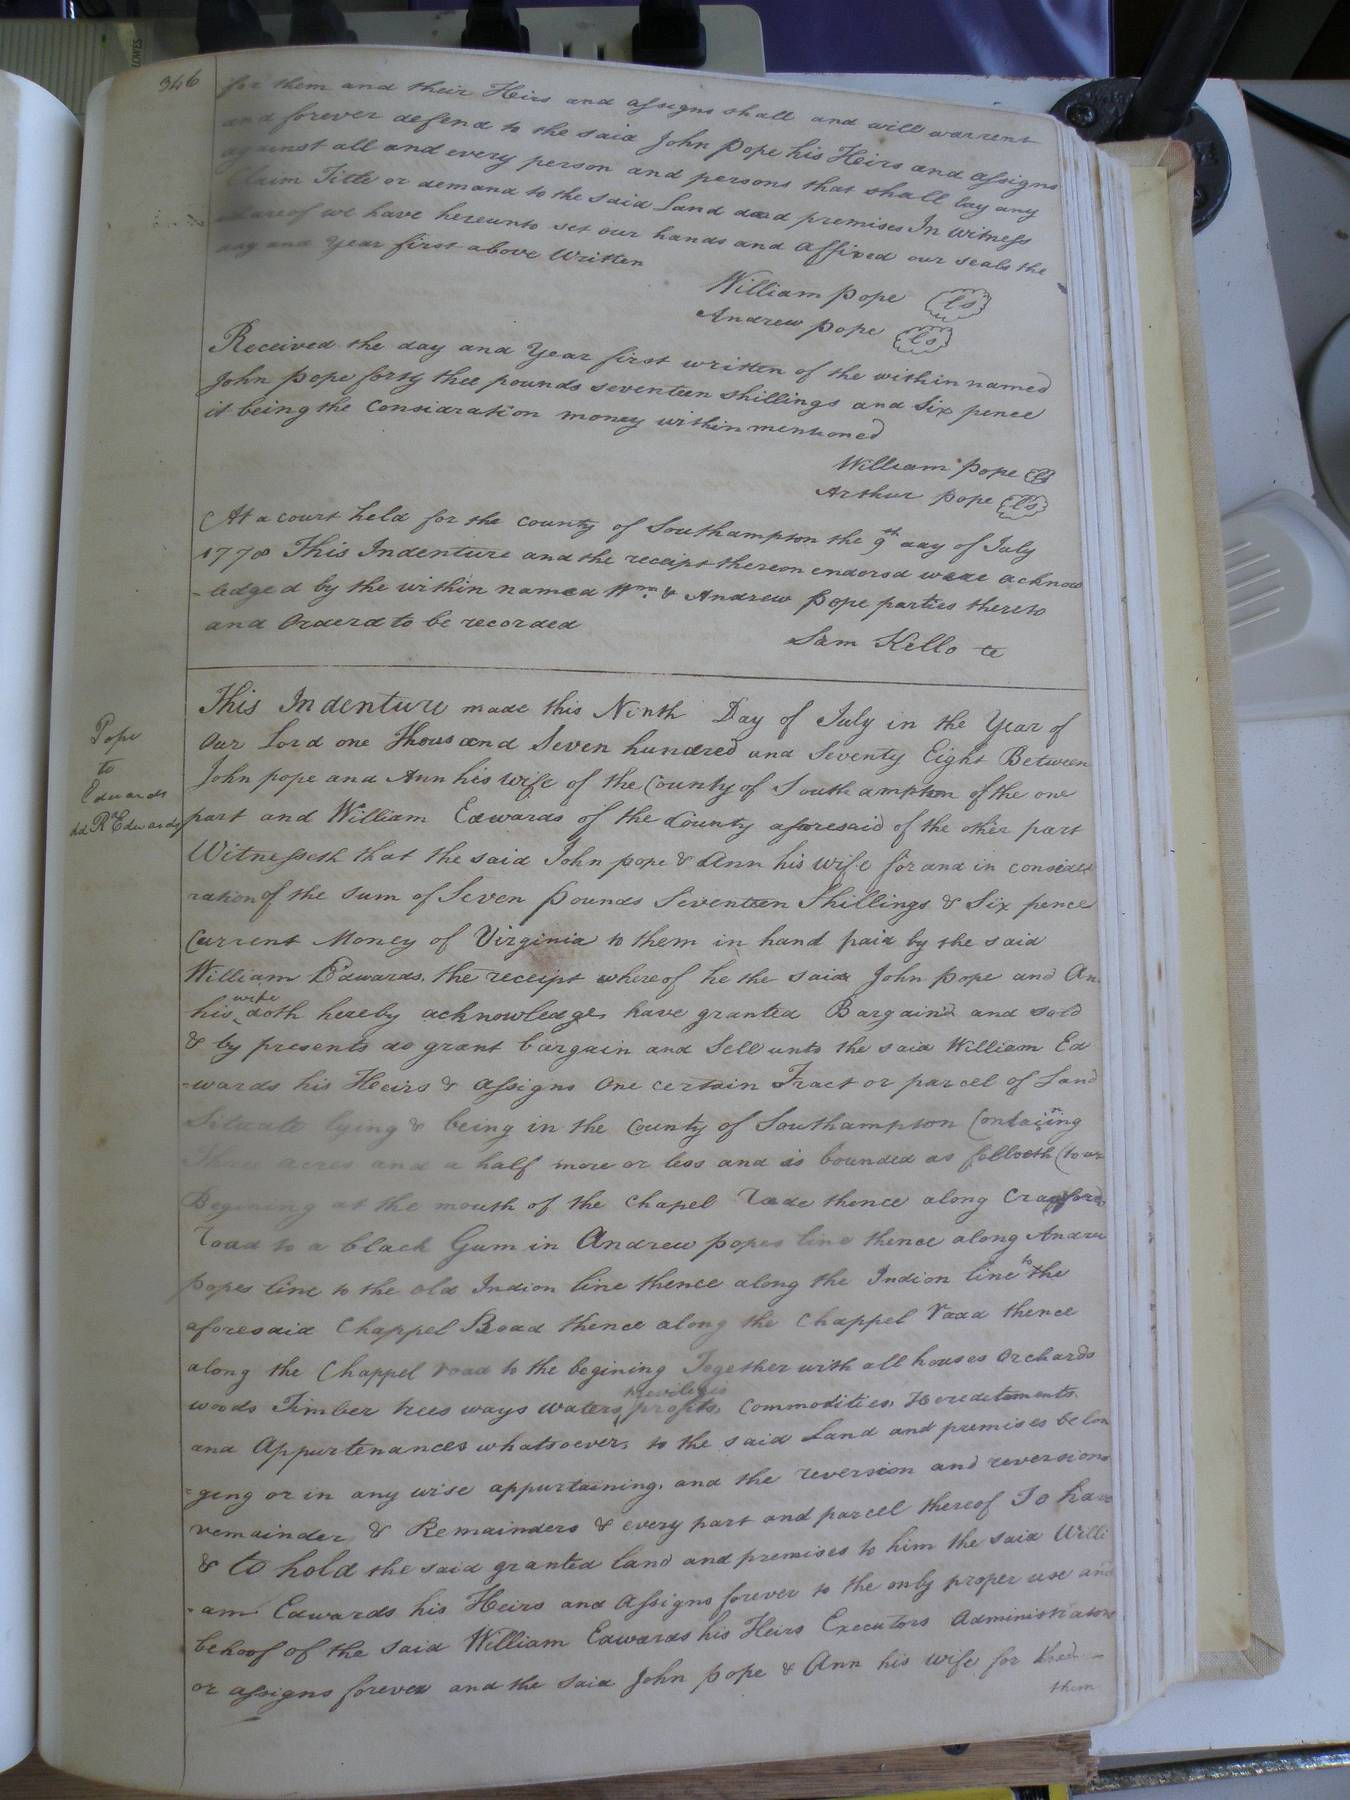 346
for them and their Heirs and assigns shall and will warrent
and forever defend to the said John Pope his Heirs and assigns
against all and every person and persons that shall lay any
Claim Title or demand to the said Land and premises In Witness
whareof we have hereunto set our hands and Affixed our seals the
day and Year first above Written
William Pope (ls)
Andrew Pope (ls)
Received the day and Year first written of the within named
John Pope forty thee pounds seventeen shillings and Six pence
it being the Consideration money within mentioned
William Pope (ls)
Arthur Pope (ls)
At a court held for the County of Southampton the 9th day of July
1778 This Indenture and the receipt thereon endorsd were acknow
-ledged by the within named Wm. & Andrew Pope parties thereto
and Orderd to be recorded
Sam Kello Ce
Pope
to
Edwards
dd Rd Edwards
This Indenture made this Ninth Day of July in the Year of
Our Lord one Thousand Seven hundred and Seventy Eight Between
John pope and Ann his wife of the County of Southampton of the one
part and William Edwards of the County aforesaid of the other part
Witnesseth that the said John pope & Ann his wife for and in conside
ration of the sum of Seven Pounds Seventeen Shillings & Six pence
Current Money of Virginia to them in hand paid by the said
William Edwards, the receipt whereof he the said John pope and An
his wife doth hereby acknowledge, have granted Bargaind and sold
& by presents do grant bargain and Sell unto the said William Ed
-wards his Heirs & assigns One certain Tract or parcel of Land
Situate lying & being in the County of Southampton Containing
Three acres and a half more or less and is bounded as followeth (to wit
Begining at the mouth of the Chapel Rode thence along Crawfords
road to a black Gum in Andrew popes line thence along Andrew
popes line to the old Indion line thence along the Indion line to the
aforesaid Chappel Road thence along the Chappel road thence
along the Chappel road to the begining Together with all houses Orchards
woods Timber trees ways waters, previleges profits, Commodities, Hereditaments
and Appurtenances whatsoever, to the said Land and premises belon
=ging or in any wise appurtaining, and the reversion and reversions
remainder & Remainders & every part and parcel thereof To have
& to hold the said granted land and premises to him the said Willi
-am Edwards his Heirs and Assigns forever to the only proper use and
behoof of the said William Edwards his Heirs Executors Administrators
or assigns forever and the said John pope & Ann his wife for
them